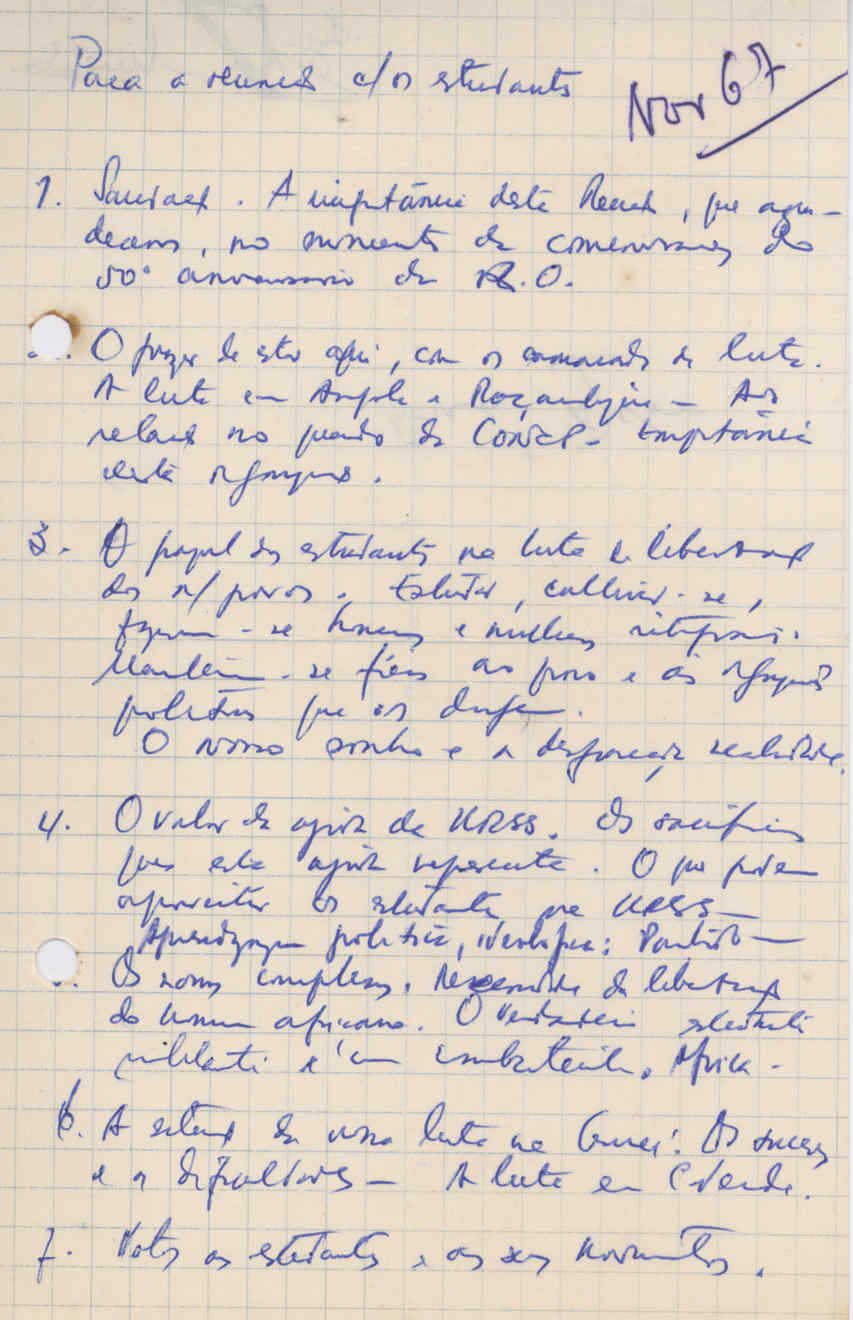 Para a reunião c/os estudantes
Nov 67
1. Saudação. A importância desta Reunião, que agra-
decemos, no momento da comemoração do
50º aniversário da R.O.
O prazer de estar aqui, com os camaradas de luta.
A luta em Angola e Moçambique — As
relações no quadro da CONCP - Importância
desta organização.
3. O papel dos estudantes na luta de libertação
dos n/povos. Estudar, cultivar-se,
fazerem-se homens e mulheres
Manterem-se fiéis ao povo e às organizações
políticas que os dirigem.
O nosso sonho e a realidade.
4. O valor da ajuda da URSS. Os sacrifícios
que esta ajuda representa. O que podem
aproveitar os estudantes na URSS —
Aprendizagem política, ideológica: Partido —
Os nossos complexos. Necessidade da libertação
do homem africano. O verdadeiro estudante
militante é um combatente. África -
6. A situação da nossa luta na Guiné. Os sucessos
e as dificuldades — A luta em C.Verde.
7. Votos aos estudantes e aos seus movimentos.